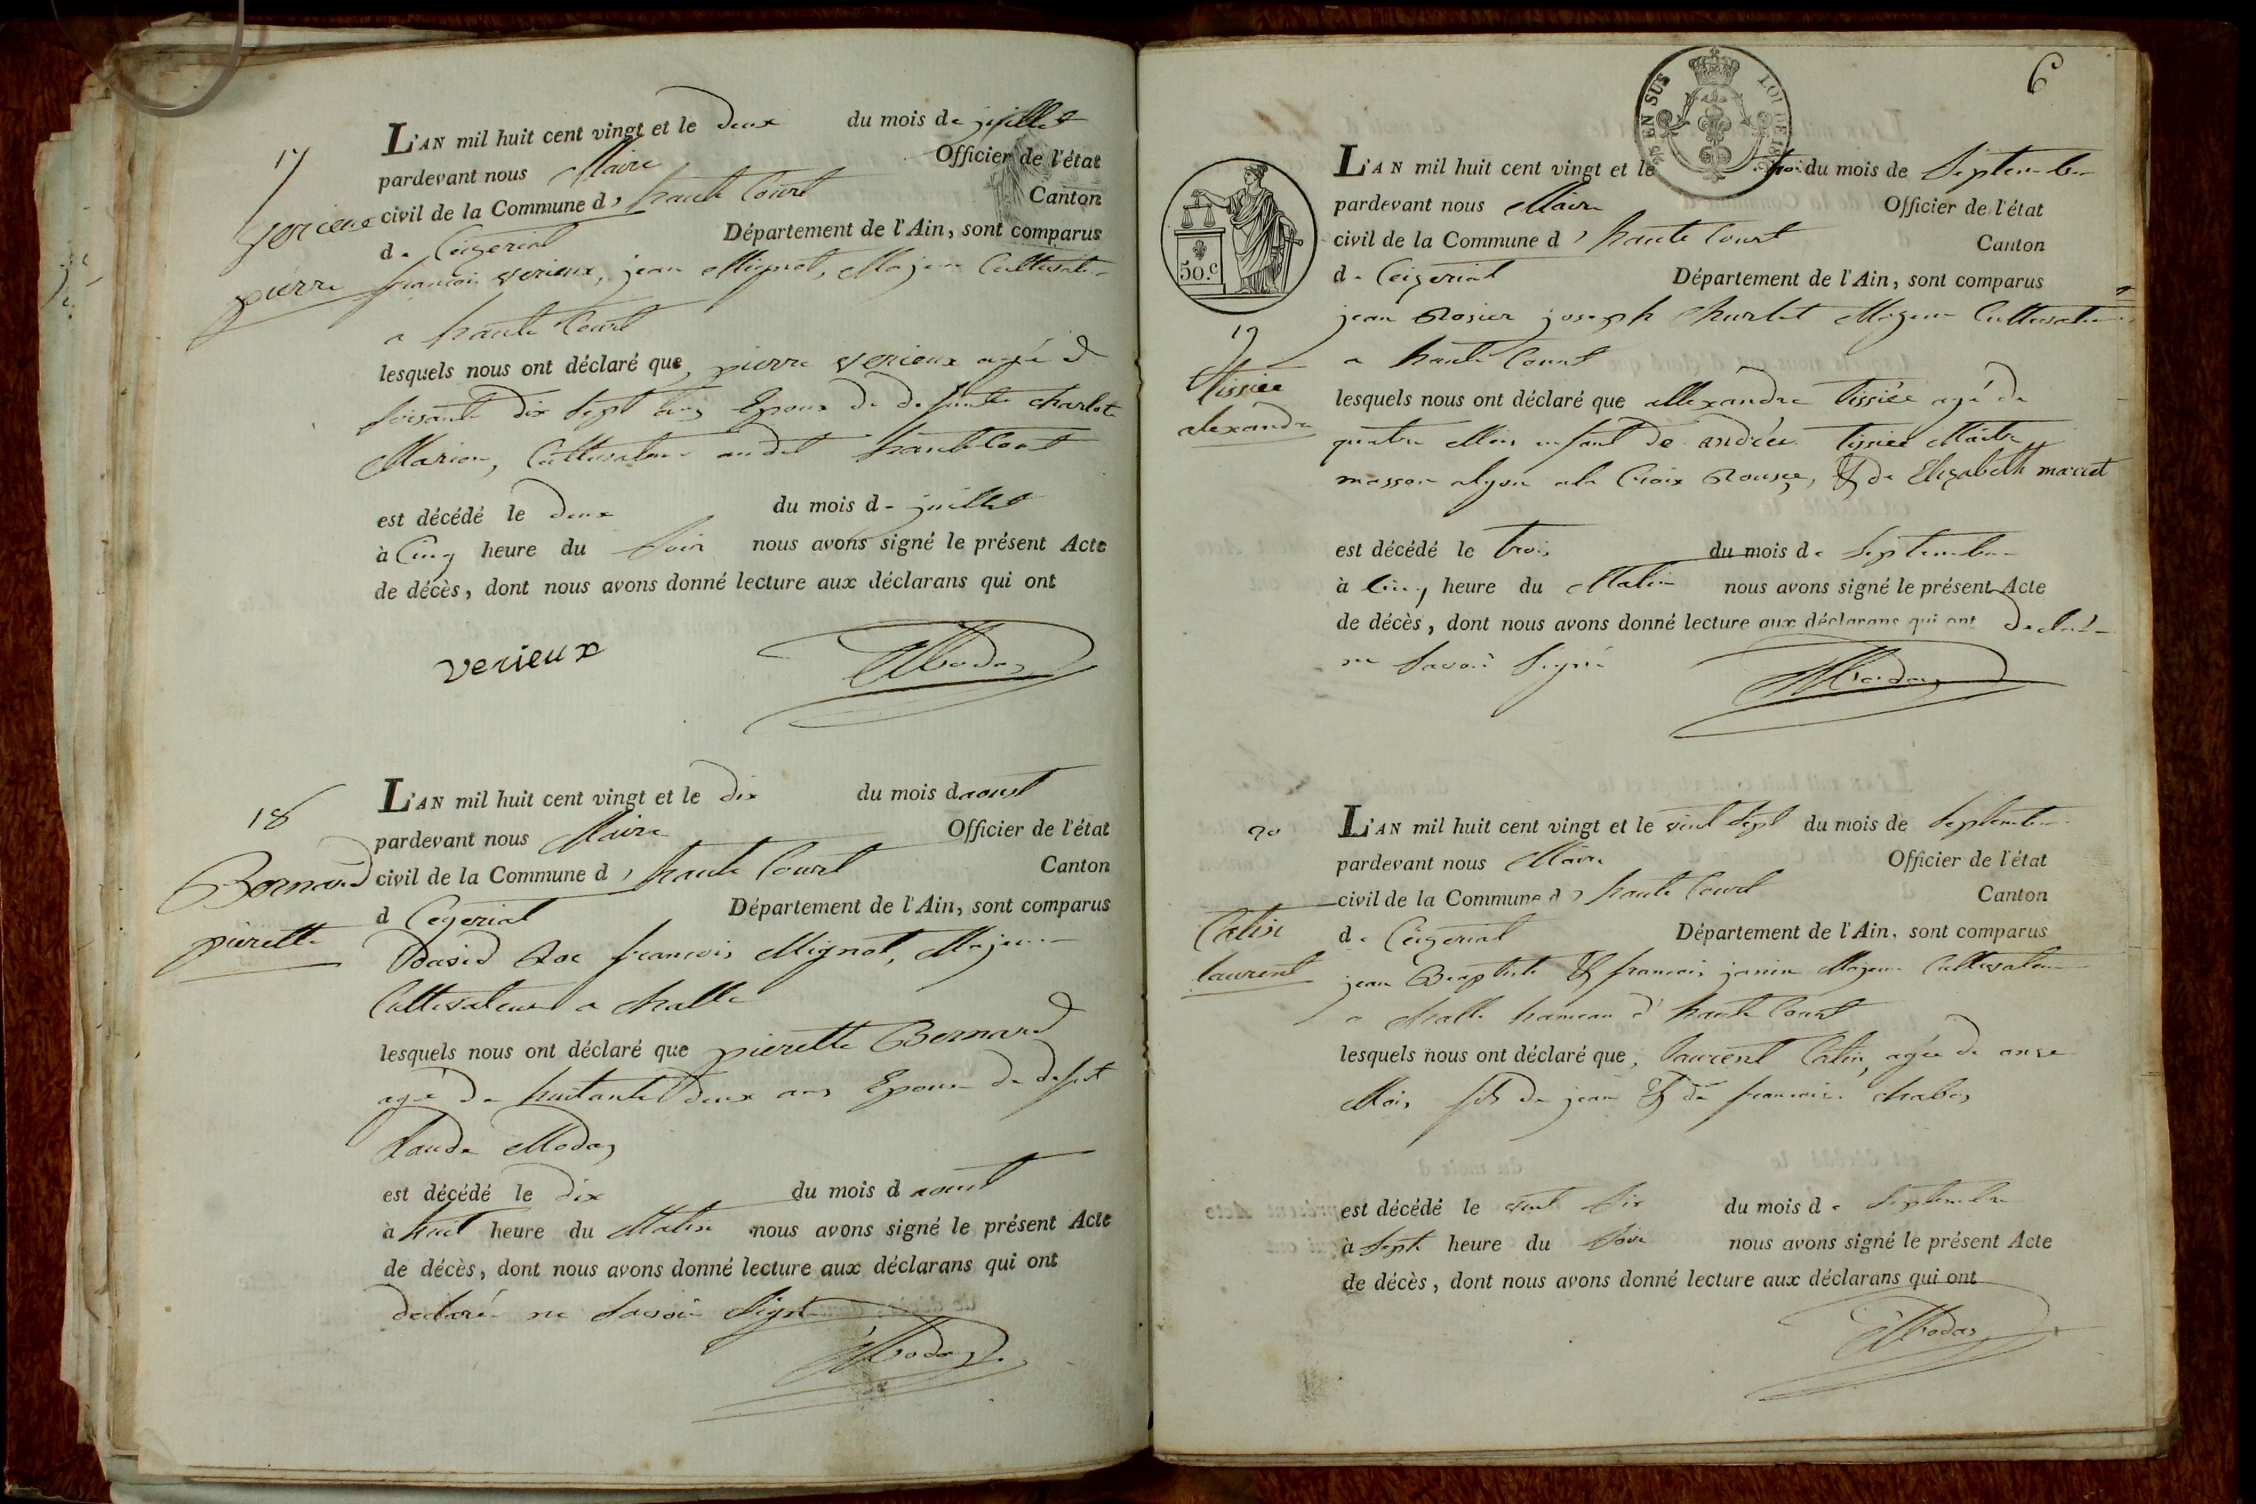 17
verieux
pierre
L'AN mil huit cent vingt et le deux du mois de juillet
pardevant nous Maire Officier de l'état
civil de la Commune d' haute Court Canton
de Ceizeriat Département de l'Ain, sont comparus
francois verieux, jean Mignot, Majeur Cultivateur
a haute Court
lesquels nous ont déclaré que pierre verieux agé de
soisante dix sept ans Epoux de defunte charlote
Marion, Cultivateur audit haute Court
est décédé le deux du mois de juillet
à Cinq heure du Soir nous avons signé le présent Acte
de décès, dont nous avons donné lecture aux déclarans qui ont
verieux
18
Bernard
pierette
L'AN mil huit cent vingt et le dix du mois d aoust
pardevant nous Maire Officier de l'état
civil de la Commune d' haute Court Canton
d Cezeriat Département de l'Ain, sont comparus
David francois Mignot, Majeur
Cultivateur a challe
lesquels nous ont déclaré que pierette Bernard
agé de huitante deux ans Epouse de defunt
Claude Modas
est décédé le dix du mois d aoust
à huit heure du Matin nous avons signé le présent Acte
de décès, dont nous avons donné lecture aux déclarans qui ont
declaré ne savoir signé
6
5/10 EN SUS LOI DE 1816
50.c
19
tissiée
alexandre
L'AN mil huit cent vingt et le troi du mois de Septembre
pardevant nous Maire Officier de l'état
civil de la Commune d' haute Court Canton
de Ceizeriat Département de l'Ain, sont comparus
jean Rosier joseph churlet Majeur Cultivateur
a haute Court
lesquels nous ont déclaré que allexandre tissiée agé de
quatre Mois enfant de andrée tissiée Maitre
masson a lyon a la Croix Rousse, & de Elizabeth marret
est décédé le trois du mois de Septembre
à Cinq heure du Matin nous avons signé le présent Acte
de décès, dont nous avons donné lecture aux déclarans qui ont declaré
ne Savoir Signé
20
Catin
laurent
L'AN mil huit cent vingt et le vint Sept du mois de Septembre
pardevant nous Maire Officier de l'état
civil de la Commune d' haute Court Canton
de Ceizeriat Département de l'Ain, sont comparus
jean Baptiste & francois janin Majeur Cultivateur
a challe hameau d' haute Court
lesquels nous ont déclaré que laurent Catin, agée de onze
Mois fils de jean & de francoise chabos
est décédé le vint Six du mois de Septembre
à Sept heure du Soir nous avons signé le présent Acte
de décès, dont nous avons donné lecture aux déclarans qui ont